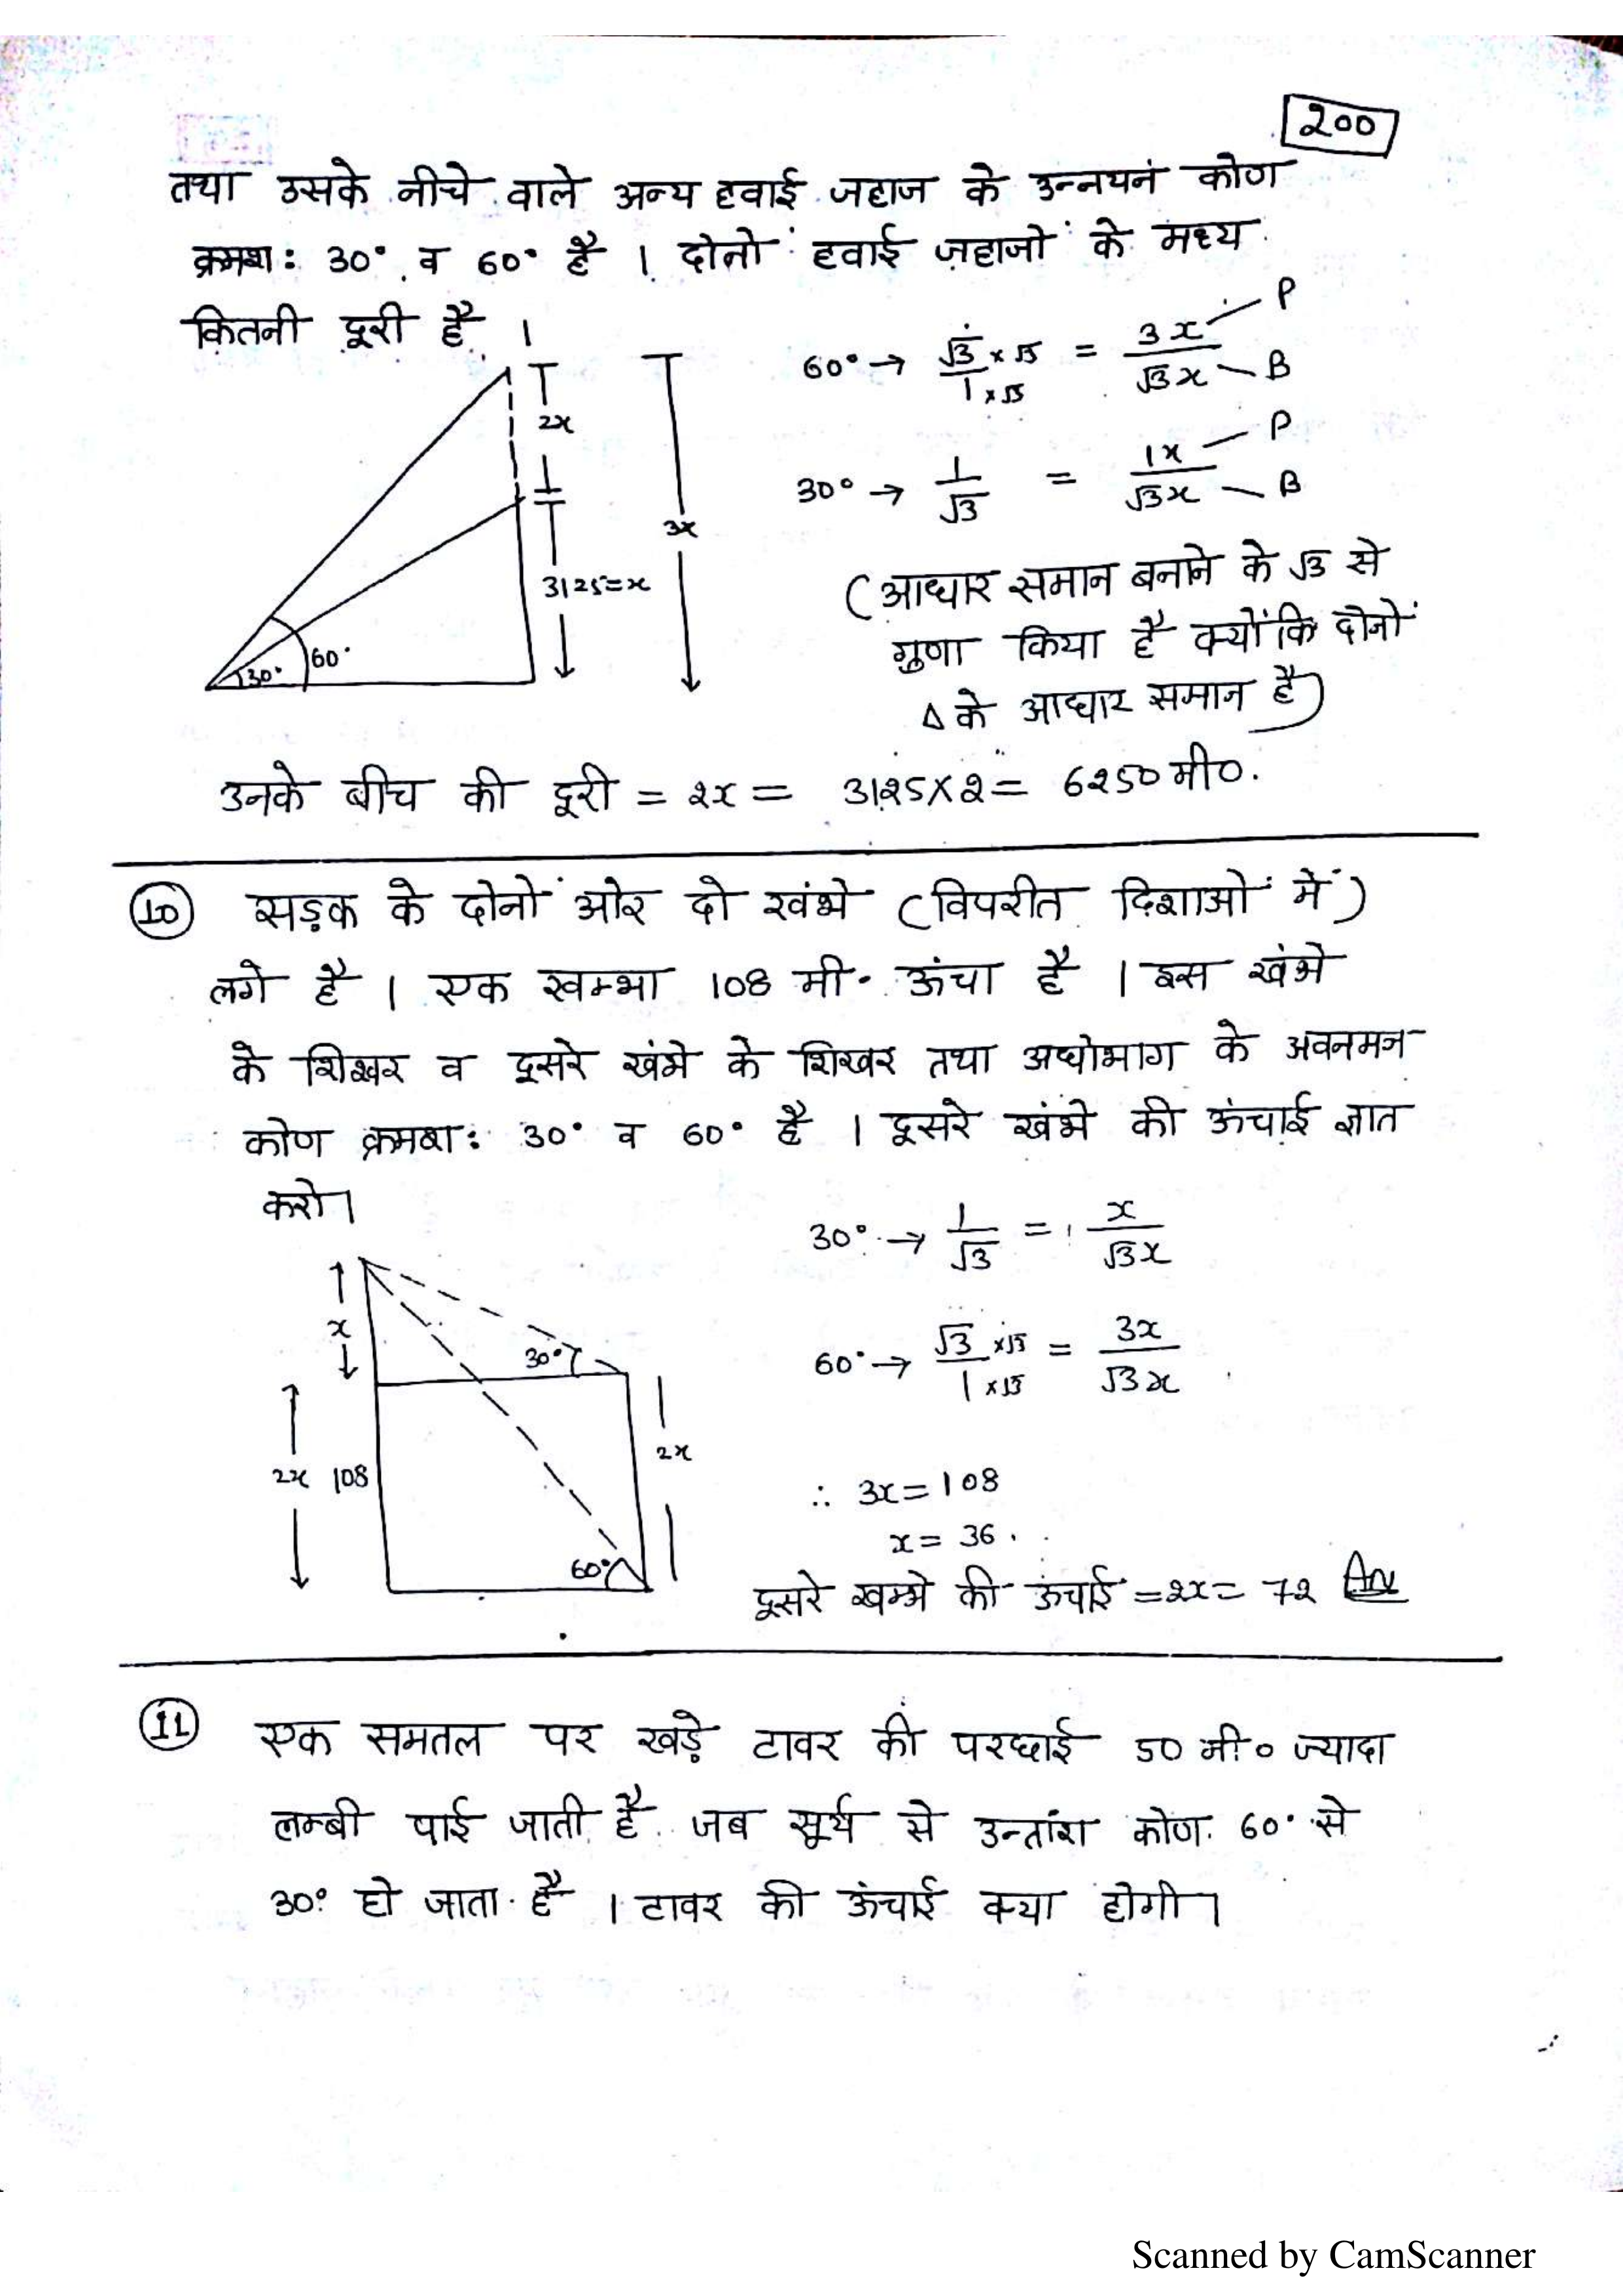 200
तथा उसके नीचे वाले अन्य हवाई जहाज के उन्नयन कोण
क्रमश: 30° व 60° है । दोनों हवाई जहाजों के मध्य
कितनी दूरी है ।
60° → √3 × √3 / 1 × √3 = 3x / √3x P B
30° → 1 / √3 = 1x / √3x P B
2x
3x
3125=x
30° 60°
(आधार समान बनाने के √3 से
गुणा किया है क्योंकि दोनों
Δ के आधार समान है)
उनके बीच की दूरी = 2x = 3125×2= 6250 मी०.
10 सड़क के दोनों ओर दो खंभे (विपरीत दिशाओं में)
लगे है । एक खम्भा 108 मी. ऊंचा है । इस खंभे
के शिखर व दूसरे खंभे के शिखर तथा अधोभाग के अवनमन
कोण क्रमश: 30° व 60° है । दूसरे खंभे की ऊंचाई ज्ञात
करो।
30° → 1 / √3 = x / √3x
60° → √3 × √3 / 1 × √3 = 3x / √3x
x
30°
2x 108
2x
60°
∴ 3x=108
x= 36.
दूसरे खम्भे की ऊंचाई =2x= 72 Ans
11 एक समतल पर खड़े टावर की परछाई 50 मी० ज्यादा
लम्बी पाई जाती है जब सूर्य से उन्तांश कोण 60° से
30° हो जाता है । टावर की ऊंचाई क्या होगी।
Scanned by CamScanner